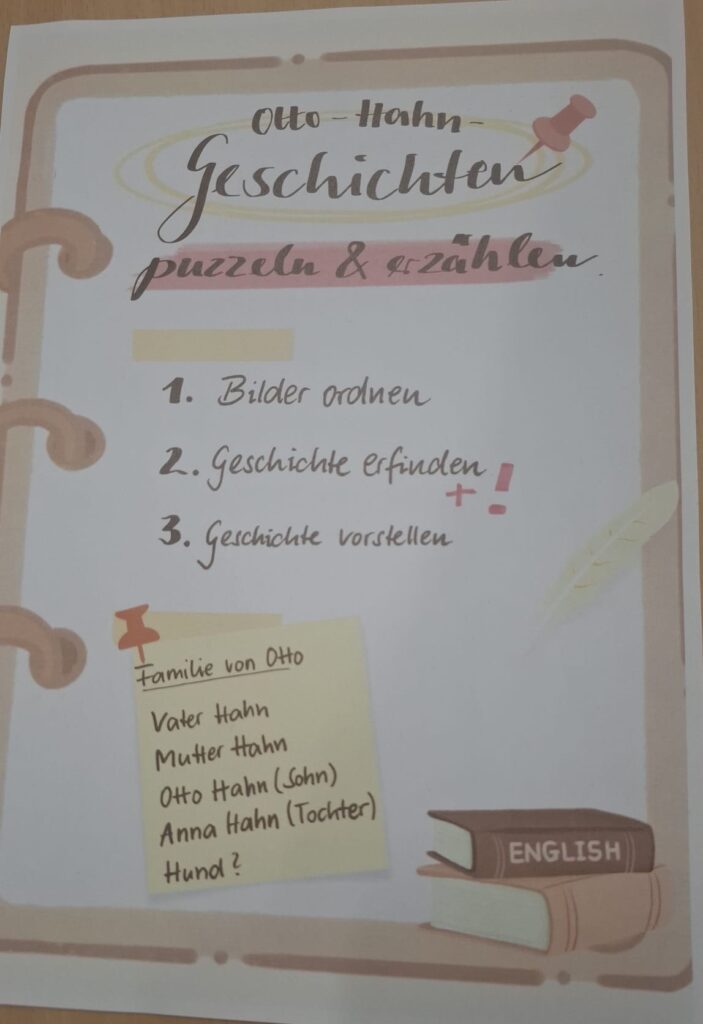 Otto-Hahn-
Geschichten
puzzeln & erzählen
1. Bilder ordnen
2. Geschichte erfinden
+ !
3. Geschichte vorstellen
Familie von Otto
Vater Hahn
Mutter Hahn
Otto Hahn (Sohn)
Anna Hahn (Tochter)
Hund?
ENGLISH